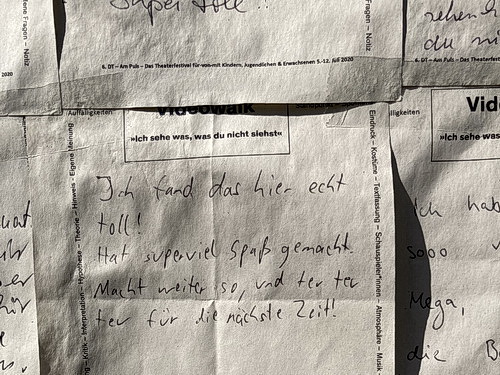 Super toll!!
6. DT – Am Puls – Das Theaterfestival für·von·mit Kindern, Jugendlichen & Erwachsenen 5.-12. Juli 2020
2020
ene Fragen – Notiz
Fragen – Notiz
du ni
6. DT – Am Puls – Das Theaterfe
Auffälligkeiten
Videowalk
»Ich sehe was, was du nicht siehst«
Hinweis – Eigene Meinung
Kritik – Interpretation – Hypothese – Theorie
Eindruck – Kostüme – Textfassung – Schauspieler*innen – Atmosphäre – Musik
Ich fand das hier echt
toll!
Hat superviel Spaß gemacht.
Macht weiter so, und ter ter
ter für die nächste Zeit!
lligkeiten
Vid
»Ich sehe was
Ich hab
sooo
Mega,
die B